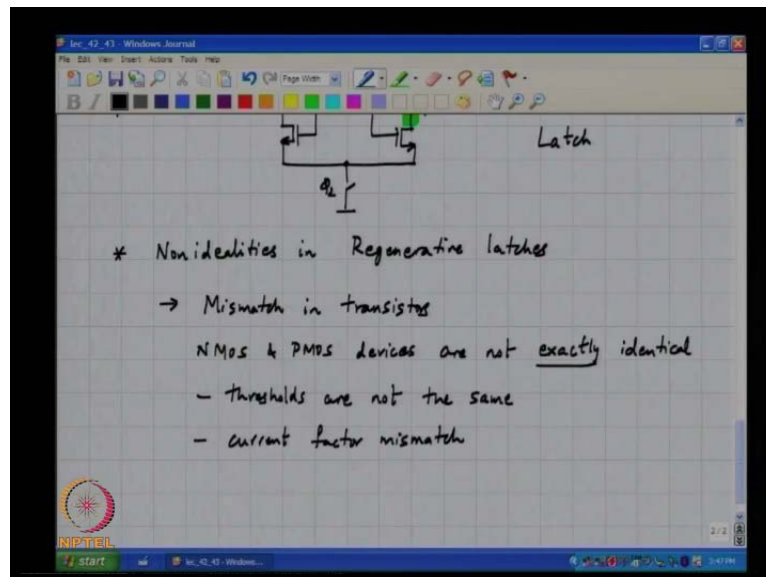 lec_42_43 - Windows Journal
File Edit View Insert Actions Tools Help
Page Width
B I
Latch
Φ2
* Nonidealities in Regenerative latches
→ Mismatch in transistos
NMOS & PMOS devices are not exactly identical
- thresholds are not the same
- current factor mismatch
2/2
NPTEL
start
lec_42_43 - Windows...
2:47 PM